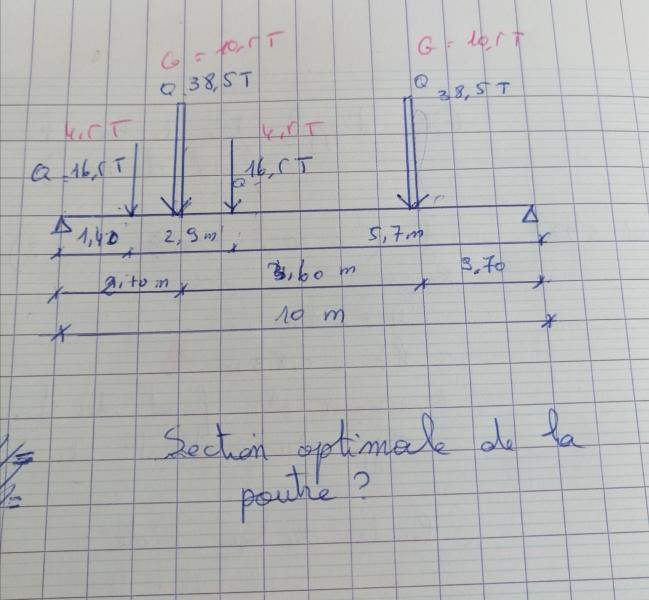 G = 10,5 T
G = 10,5 T
Q 38,5 T
Q 38,5 T
4,5 T
4,5 T
Q 16,5 T
Q 16,5 T
1,40
2,9 m
5,7 m
3,60 m
3,70
10 m
Section optimale de la
poutre ?